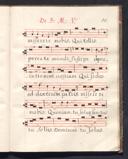 miserere nobis. Qui tollis
peccata mundi, suscipe depre
cationem nostram. Qui sedes
ad dexteram patris miserere
nobis. Quoniam tu solus sanctus
tu solus Dominus tu solus